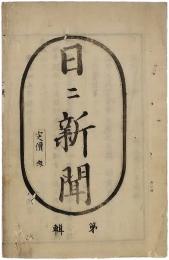 日二新聞
定價
第
輯